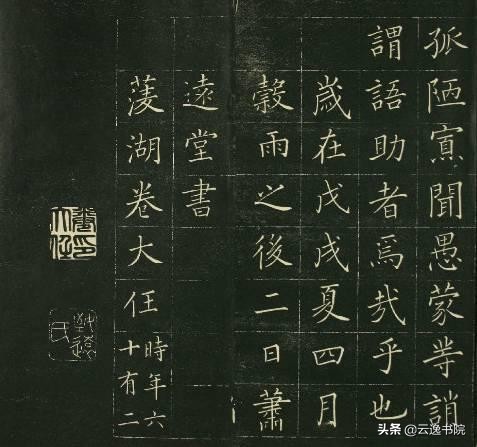 孤陋寡聞愚蒙等誚
謂語助者焉哉乎也
歲在戊戌夏四月
穀雨之後二日蕭
遠堂書
蓤湖卷大任
時年六
十有二
头条 @云逸书院